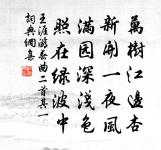 萬樹江邊杏
新開一夜風
滿园深浅色
照在绿波中
王涯游春曲二首其一
詞典網集